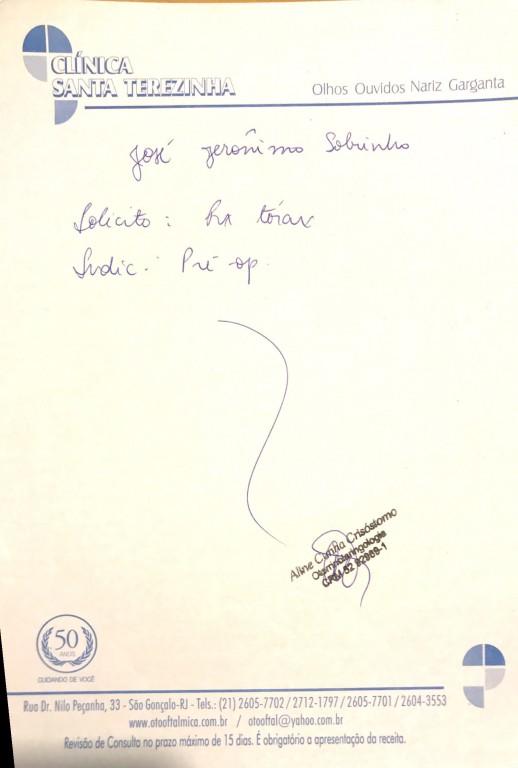 CLÍNICA
SANTA TEREZINHA
Olhos Ouvidos Nariz Garganta
José Jerônimo Sobrinho
Solicito: Rx tórax
Indic.: Pré-op.
Aline Cunha Crisóstomo
Otorrinolaringologia
CRM 52 82988-1
50
ANOS
CUIDANDO DE VOCÊ
Rua Dr. Nilo Peçanha, 33 - São Gonçalo-RJ - Tels.: (21) 2605-7702 / 2712-1797 / 2605-7701 / 2604-3553
www.otooftalmica.com.br / otooftal@yahoo.com.br
Revisão de Consulta no prazo máximo de 15 dias. É obrigatório a apresentação da receita.